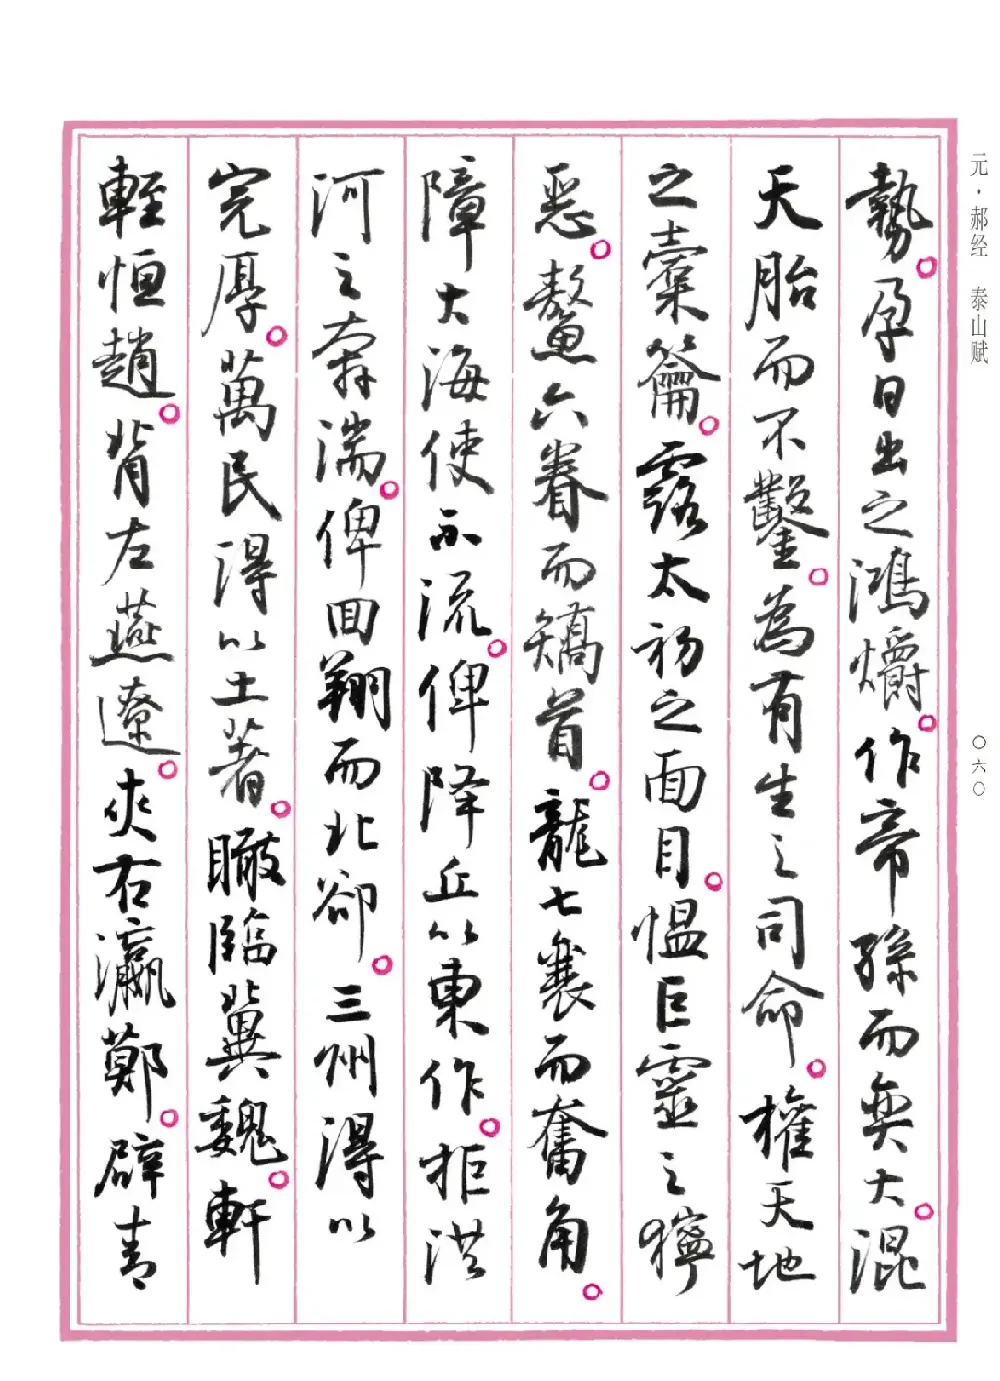 元·郝经 泰山赋
勢。孕日出之鴻爝。作帝孫而奠大。混
天胎而不鑿。為有生之司命。權天地
之橐籥。露太初之面目。愠巨靈之獰
惡。鰲六眷而矯首。龍七襄而奮角。
障大海使不流。俾降丘以東作。拒洪
河之奔湍。俾回翔而北卻。三州得以
完厚。萬民得以土著。瞰臨冀魏。軒
輊恒趙。背左燕遼。夾右瀛鄭。辟青
〇六〇